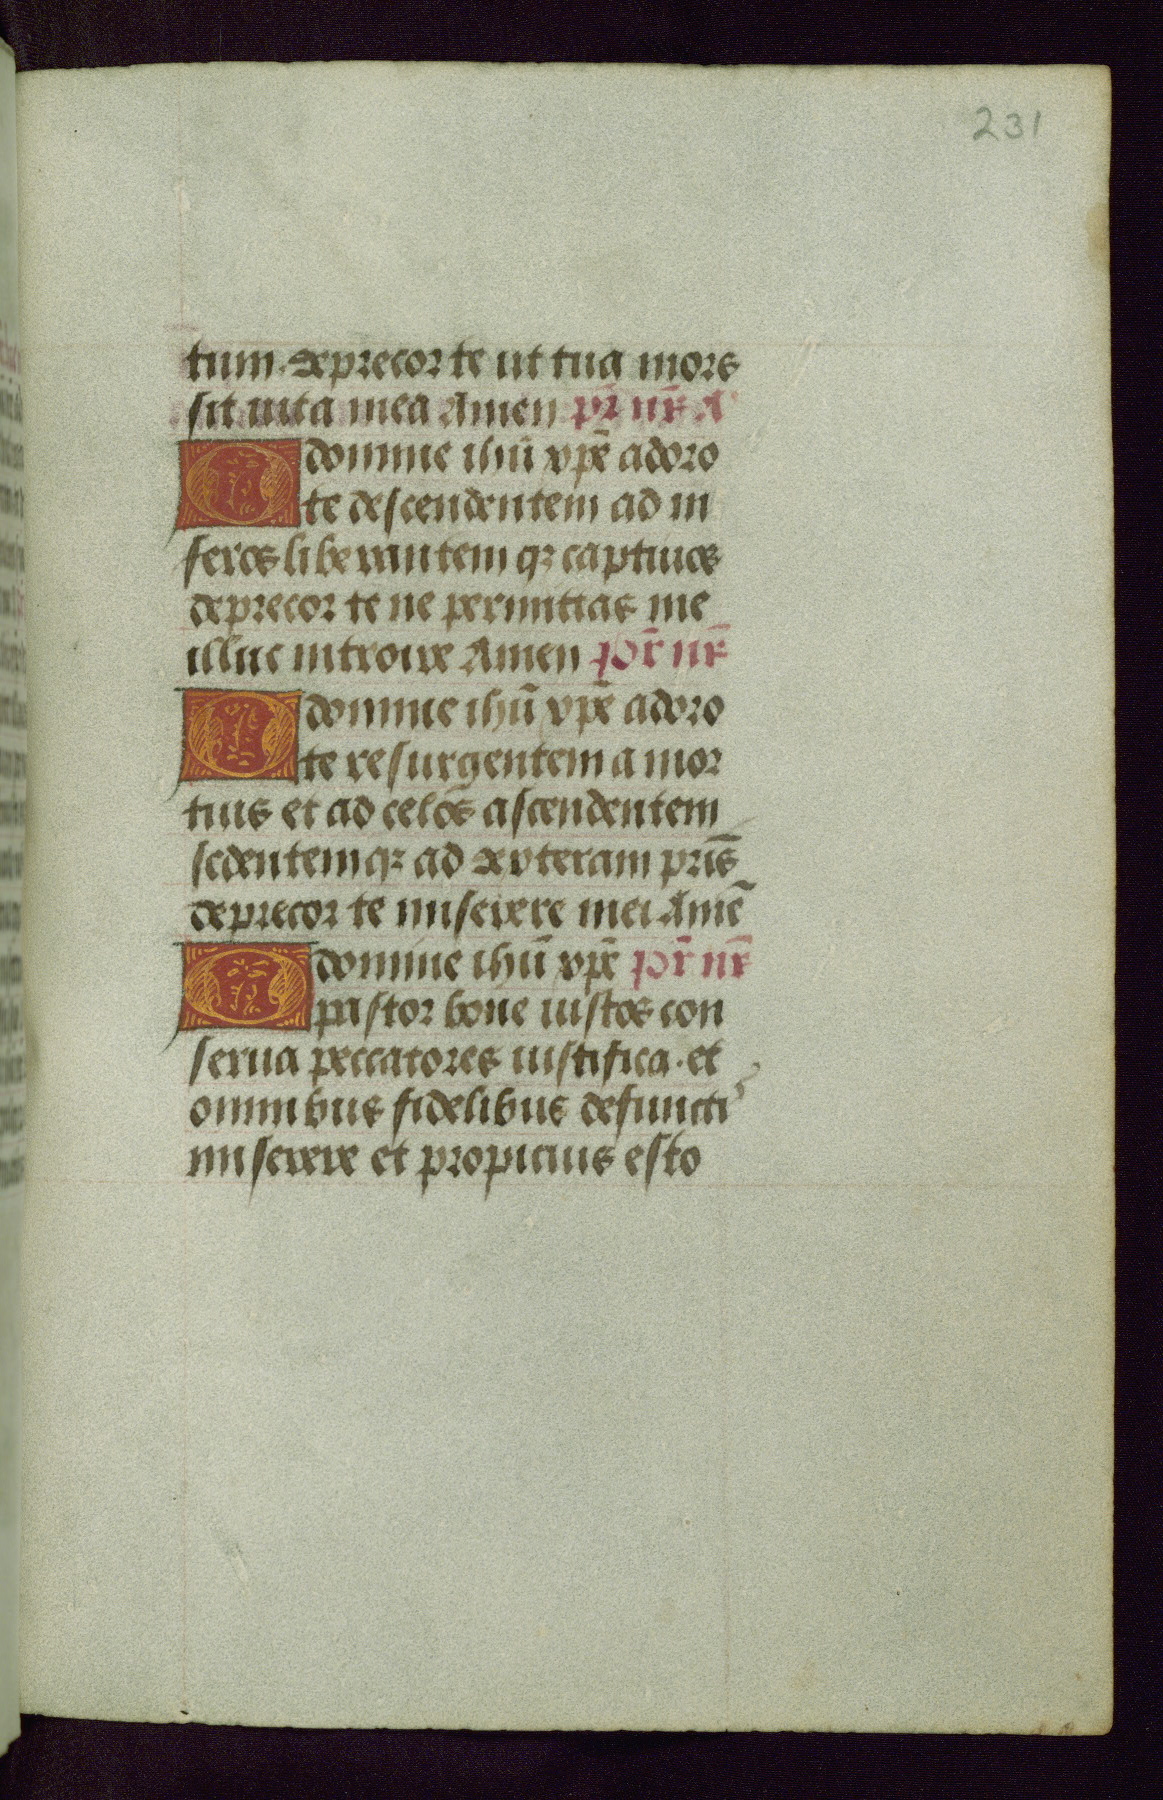 231
tum. deprecor te ut tua mors
sit uita mea Amen pr̄ nr̄ A
O domine ihū xp̄e adoro
te descendentem ad in
feros liberantem qꝫ captiuos
deprecor te ne permittas me
illuc introire Amen pr̄ nr̄
O domine ihū xp̄e adoro
te resurgentem a mor
tuis et ad celos ascendentem
sedentemqꝫ ad dexteram pr̄is
deprecor te miserere mei Amē
O domine ihū xp̄e pr̄ nr̄
pastor bone iustos con
serua peccatores iustifica. et
omnibus fidelibus defunctis
miserere et propicius esto